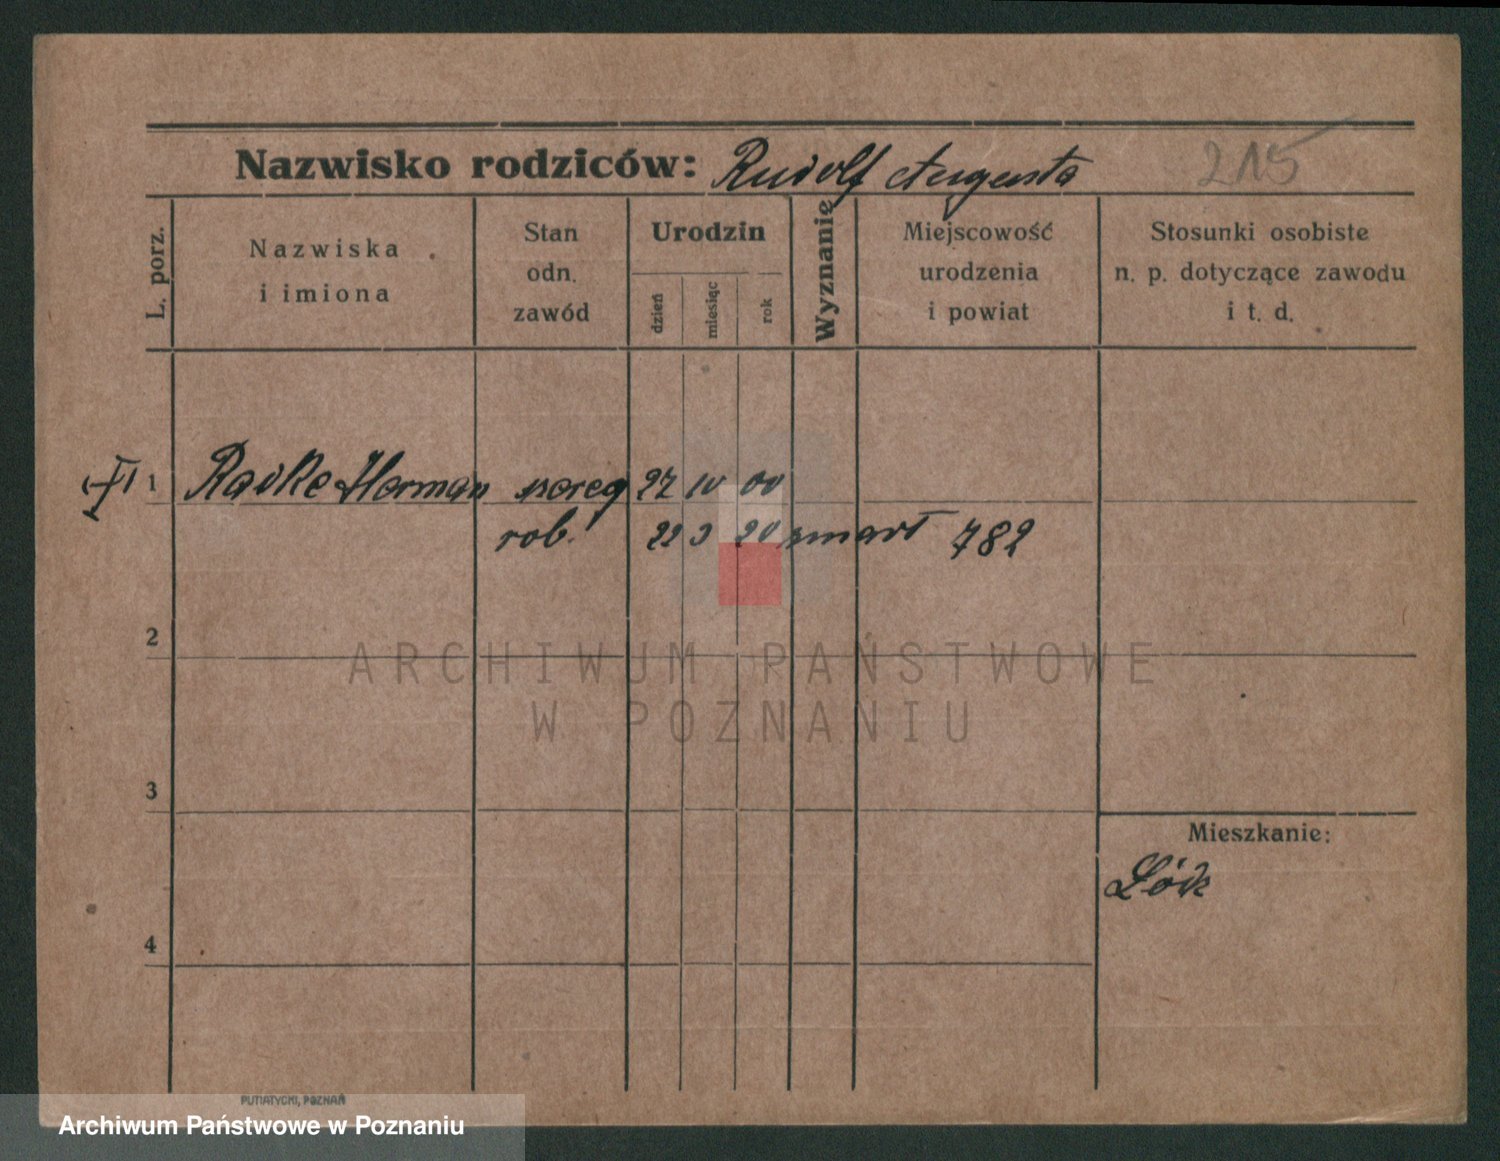 Nazwisko rodziców: Rudolf Augusta 215
L. porz.
Nazwiska
i imiona
Stan
odn.
zawód
Urodzin
dzień
miesiąc
rok
Wyznanie
Miejscowość
urodzenia
i powiat
Stosunki osobiste
n. p. dotyczące zawodu
i t. d.
1 Radke Herman szereg 27 10 00
rob. 22 3 20 zmarł 782
2
ARCHIWUM PAŃSTWOWE
W POZNANIU
3
Mieszkanie:
Łódz
4
PUTIATYCKI, POZNAŃ
Archiwum Państwowe w Poznaniu